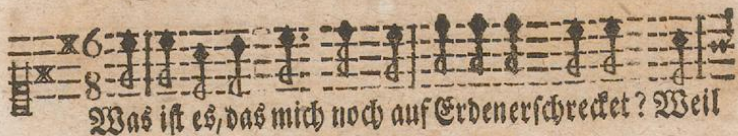 6
8
Was iſt es, das mich noch auf Erden erſchrecket? Weil